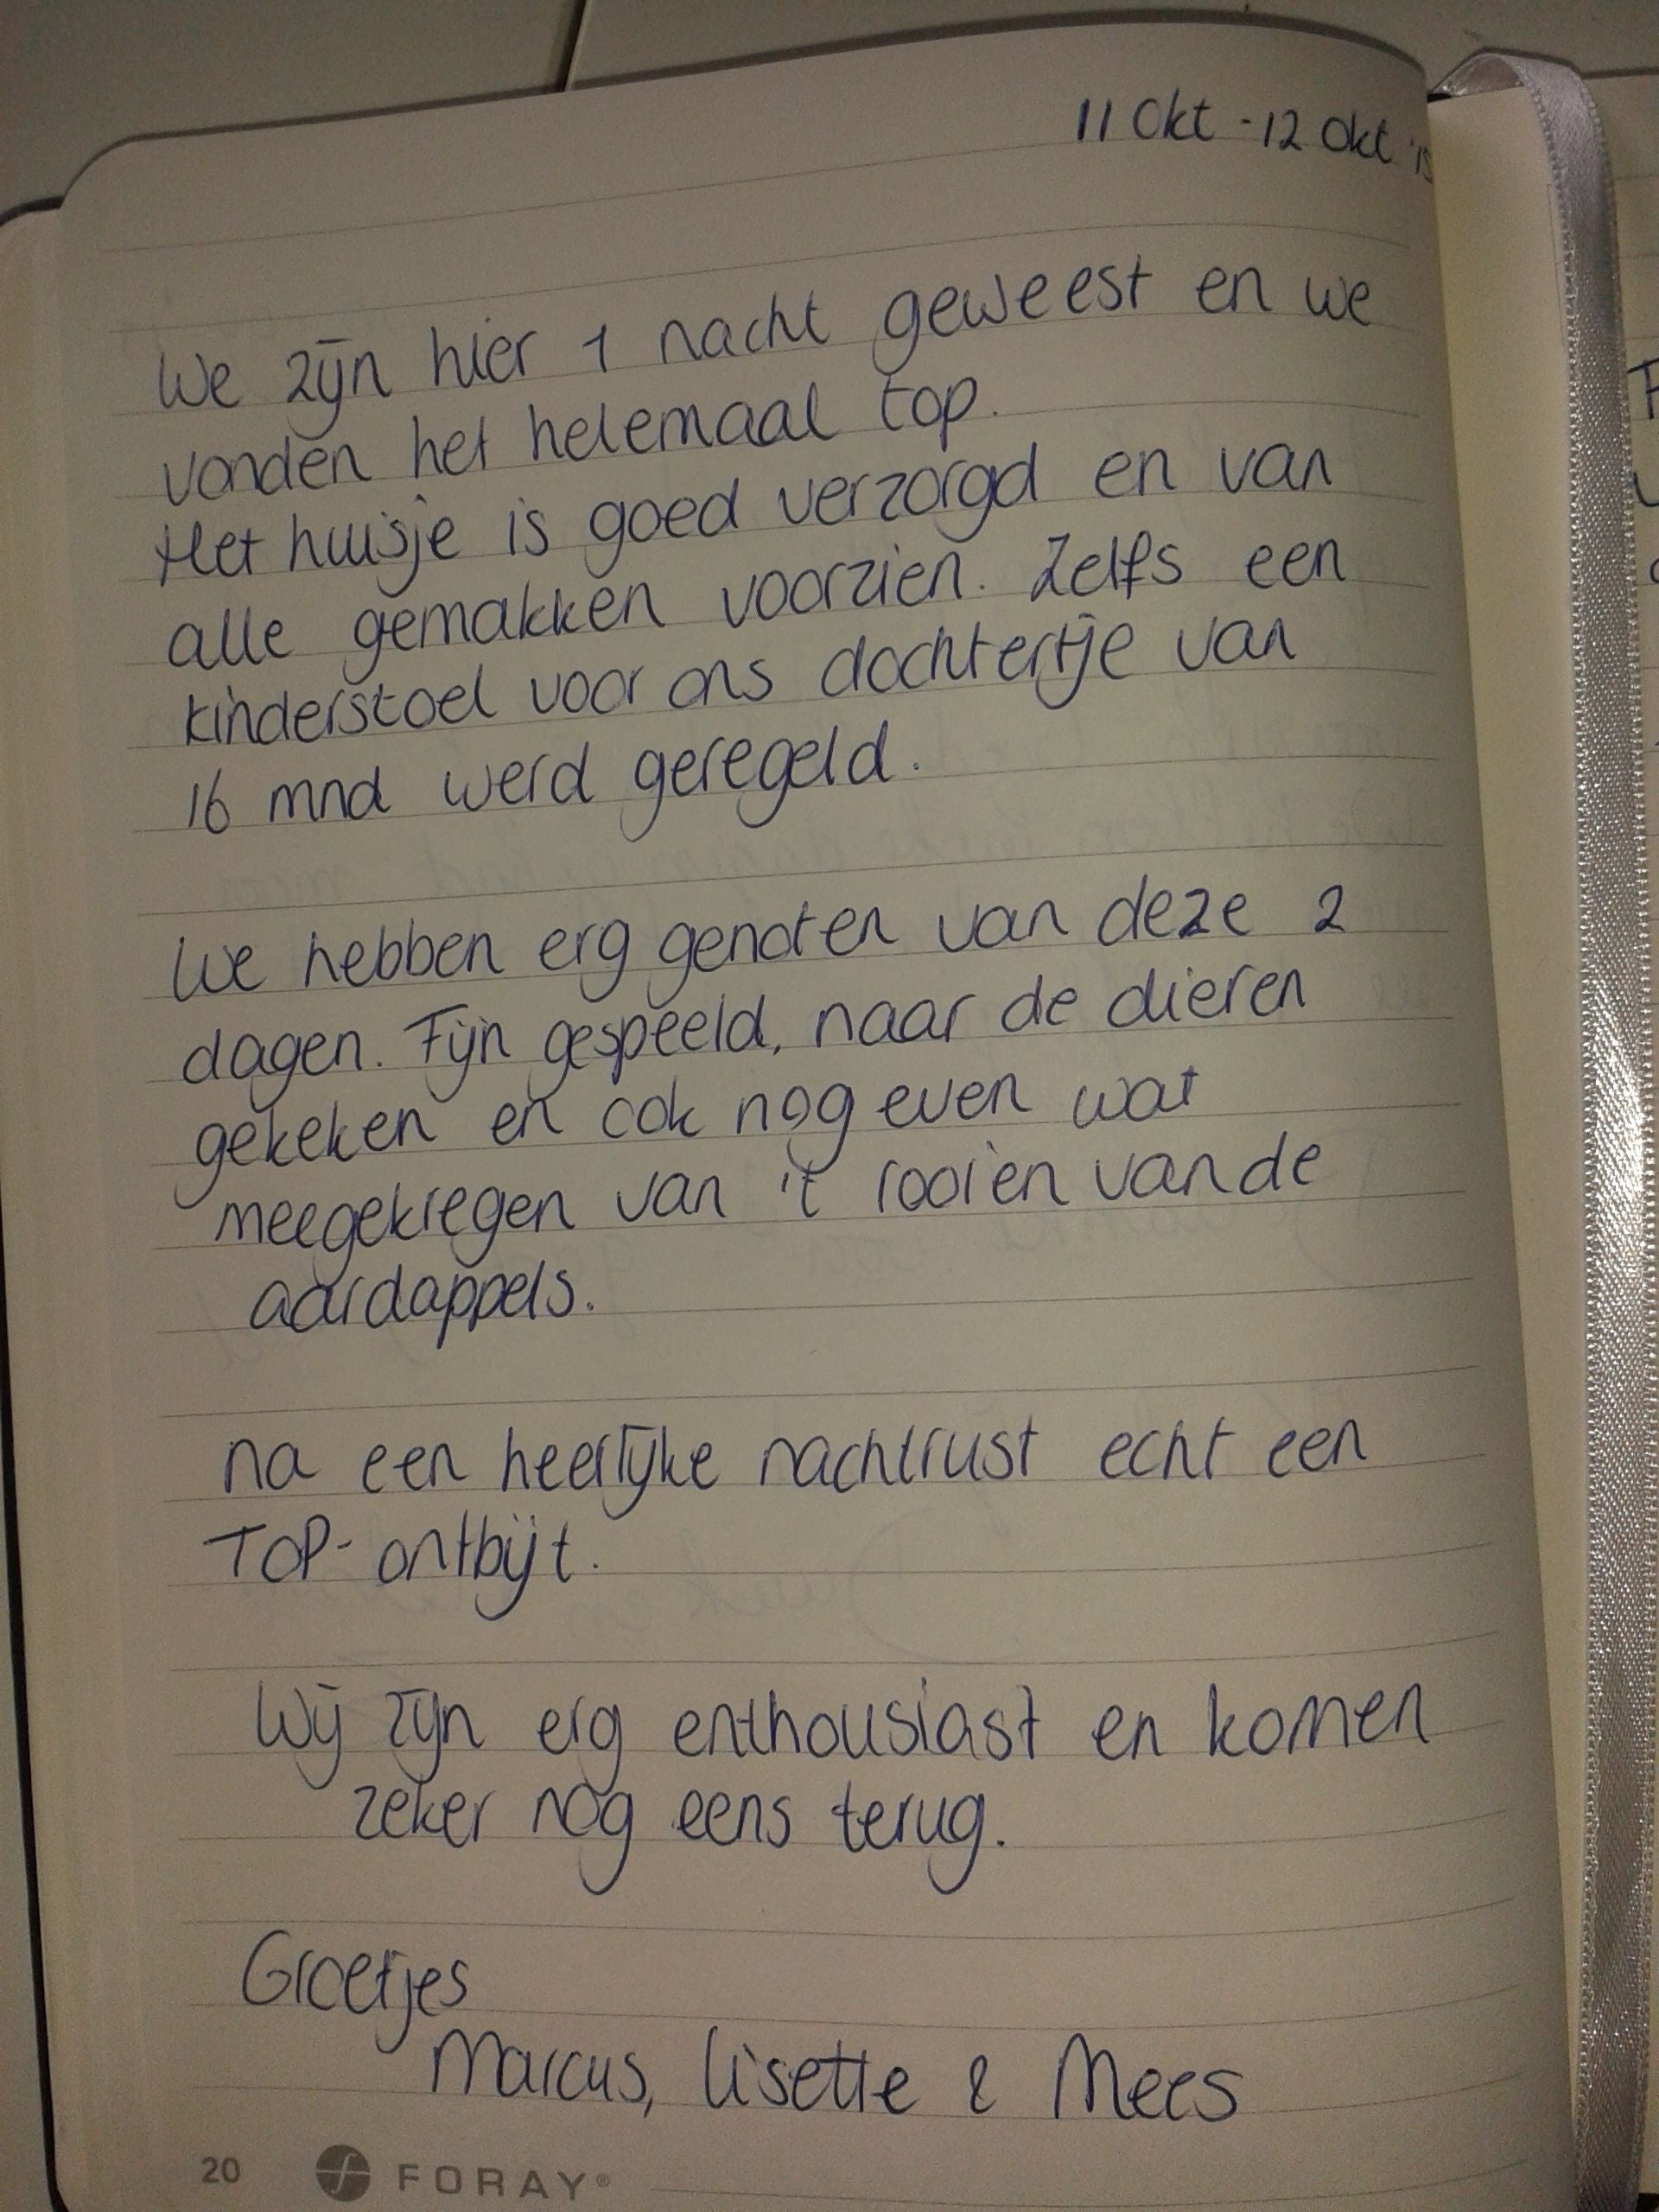 11 Okt - 12 Okt '15
We zijn hier 1 nacht geweest en we
vonden het helemaal top.
Het huisje is goed verzorgd en van
alle gemakken voorzien. Zelfs een
kinderstoel voor ons dochtertje van
16 mnd werd geregeld.
We hebben erg genoten van deze 2
dagen. Fijn gespeeld, naar de dieren
gekeken en ook nog even wat
meegekregen van 't rooien van de
aardappels.
na een heerlijke nachtrust echt een
TOP-ontbijt.
Wij zijn erg enthousiast en komen
zeker nog eens terug.
Groetjes
Marcus, Lisette & Mees
20 FORAY®